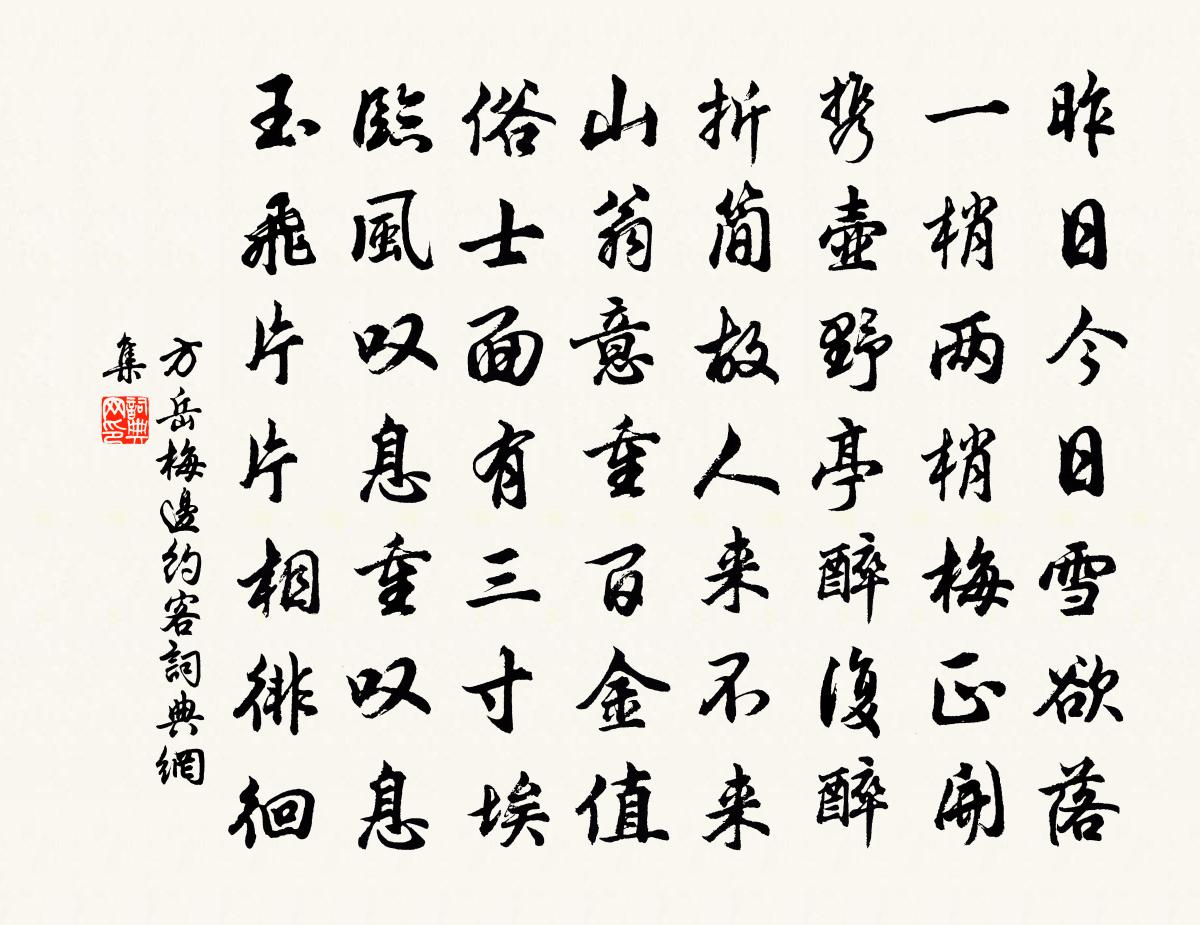 昨日今日雪欲落
一梢两梢梅正開
携壺野亭醉復醉
折简故人来不来
山翁意重百金值
俗士面有三寸埃
臨風叹息重叹息
玉飛片片相徘徊
方岳梅邊約客詞典網
集
詞典
网印